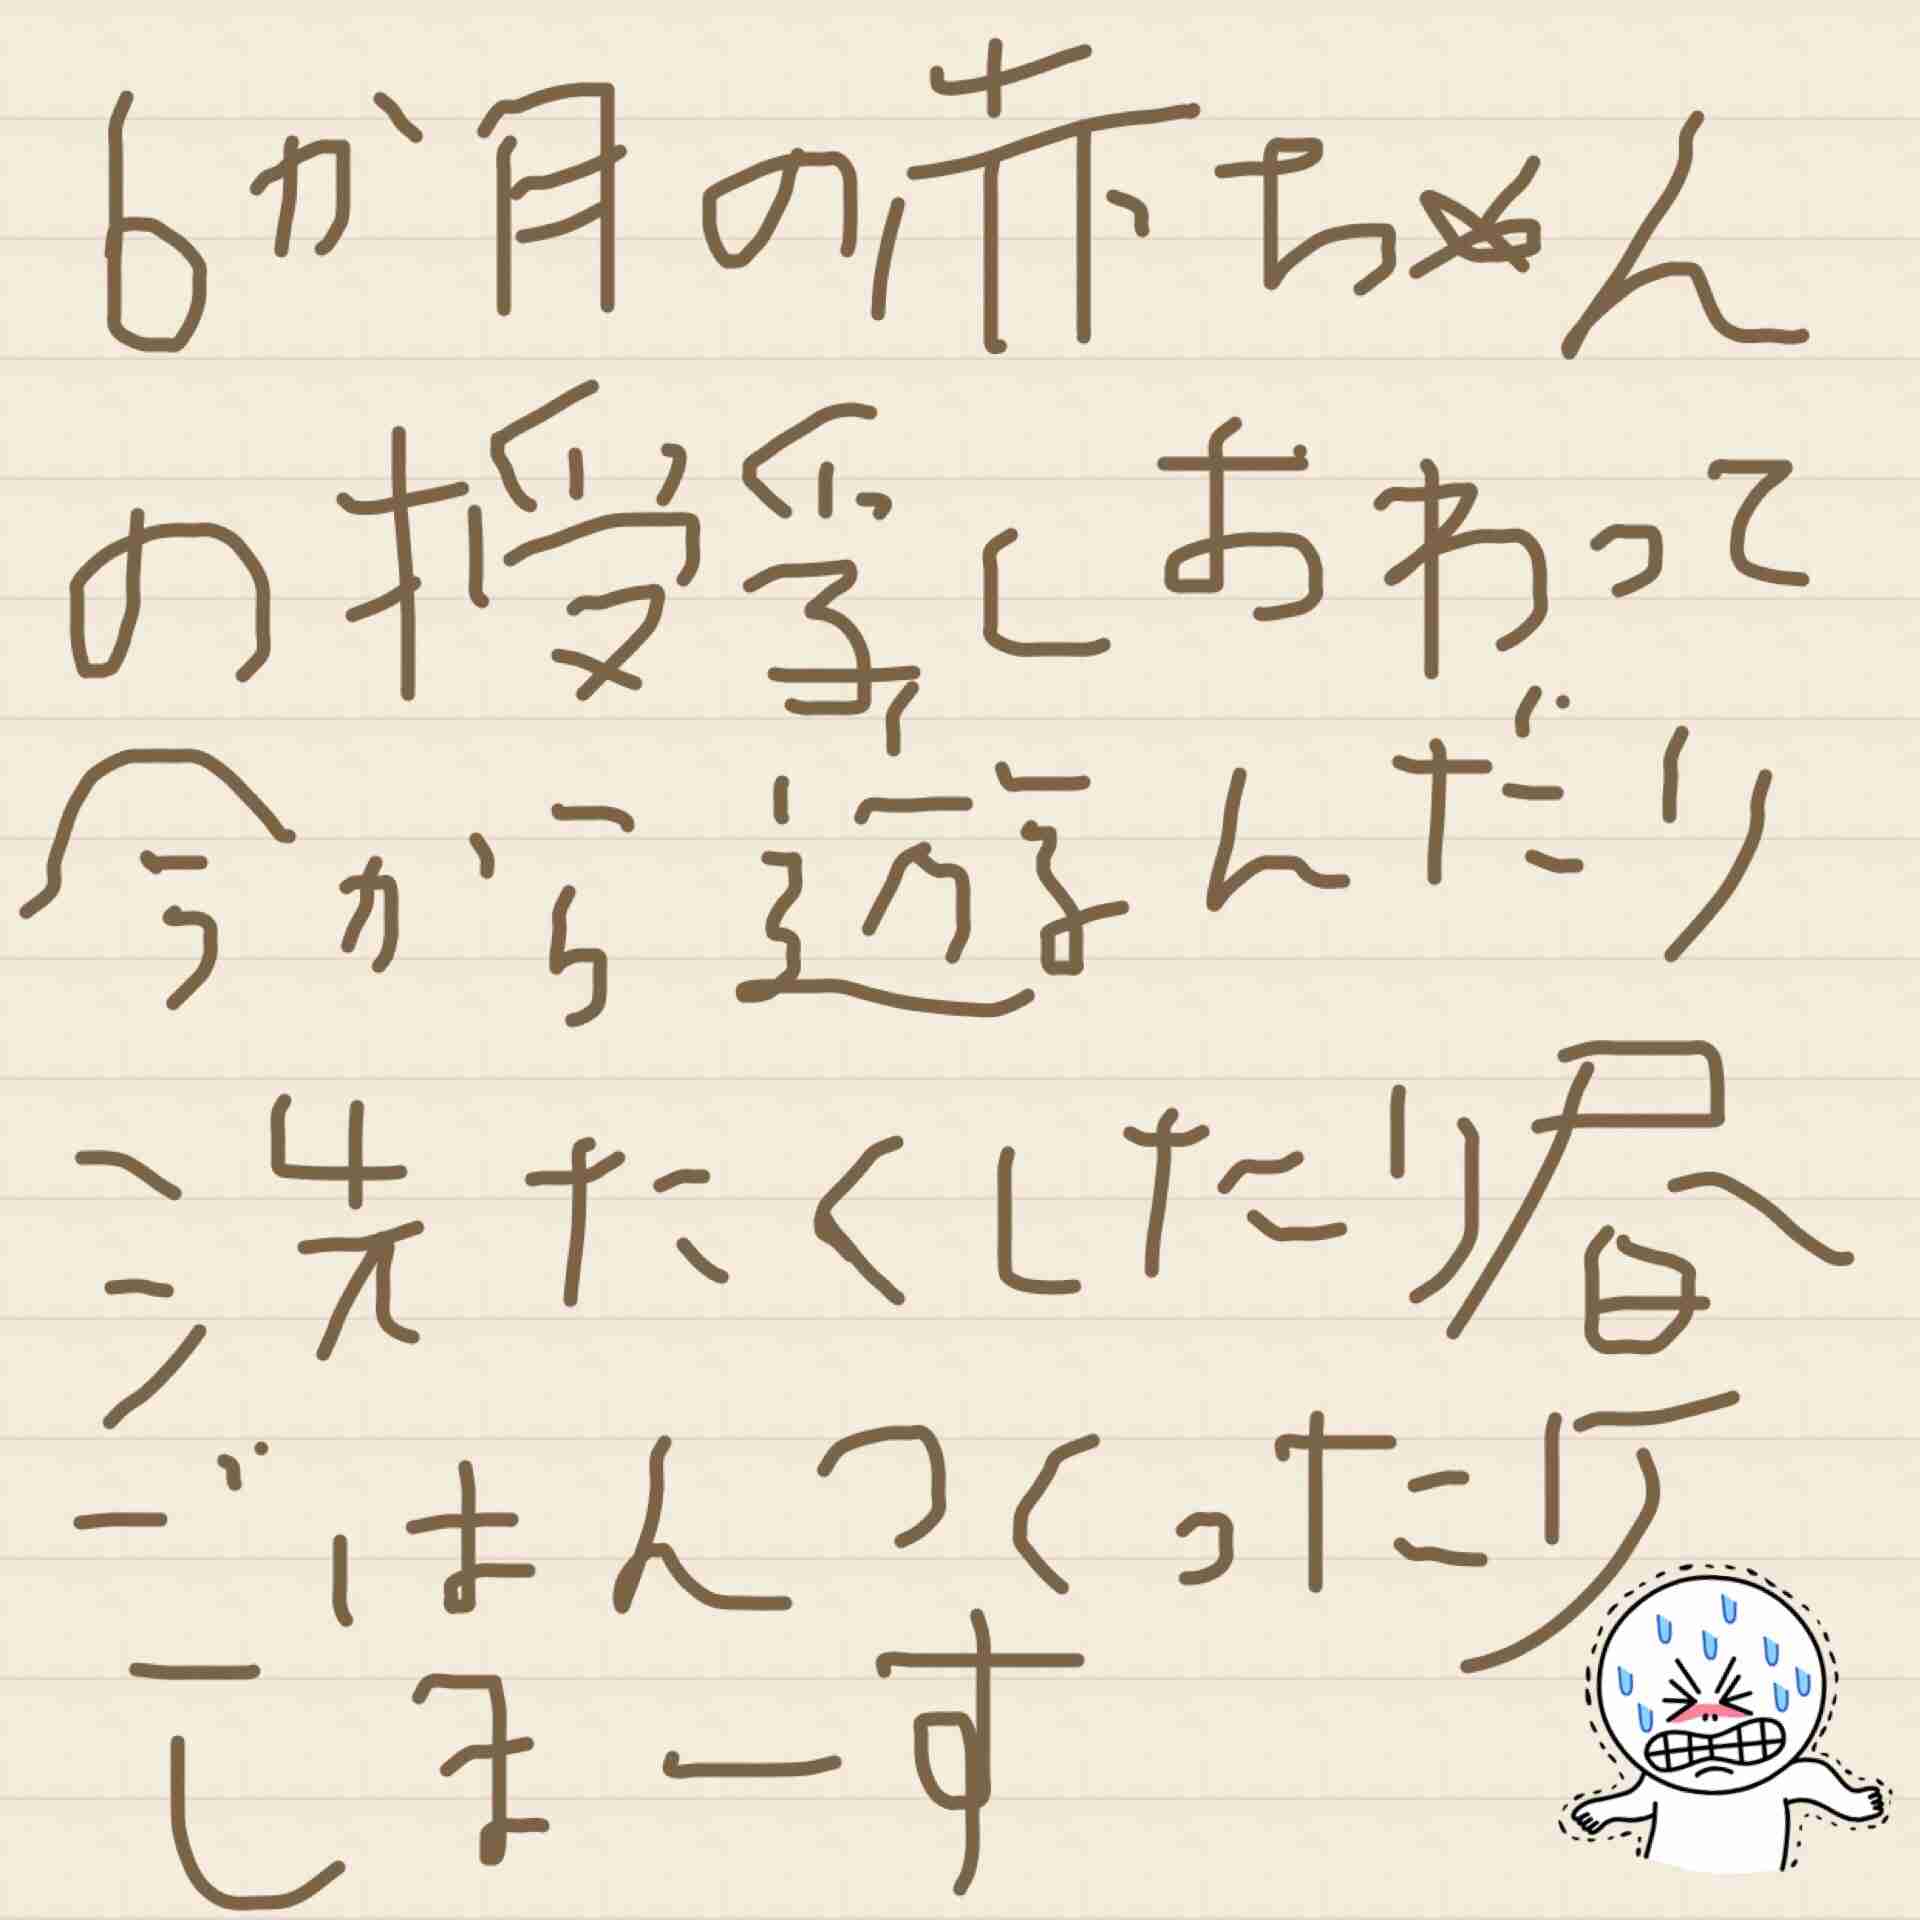 6か月の赤ちゃん
の授乳しおわって
今から遊んだり
洗たくしたり昼
ごはんつくったり
しまーす